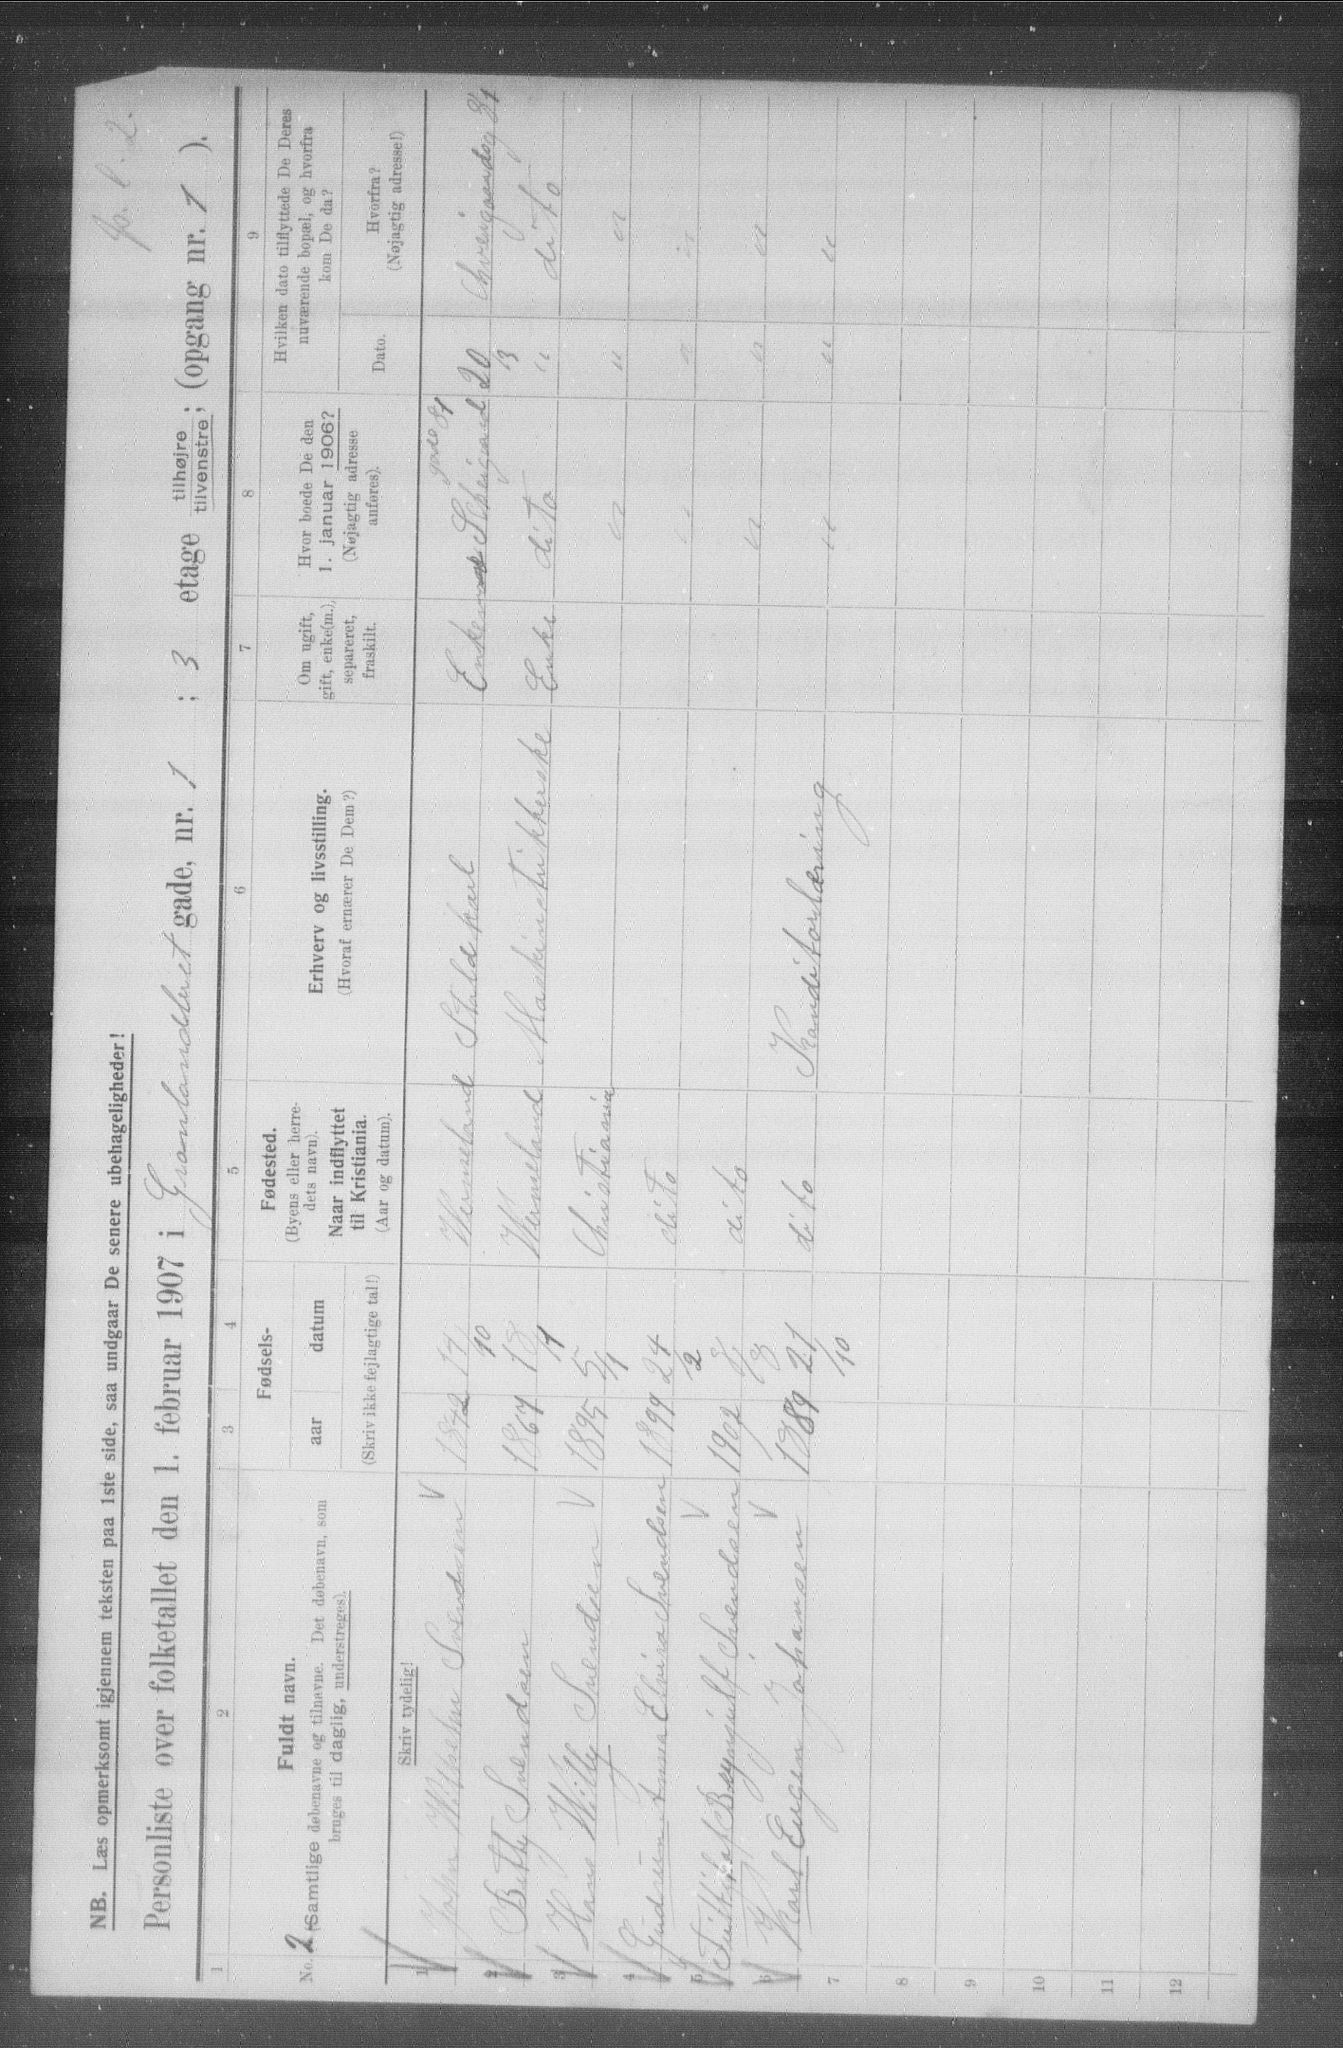 p. l. 2.
NB. Læs opmerksomt igjennem teksten paa 1ste side, saa undgaar De senere ubehageligheder!
Personliste over folketallet den 1. februar 1907 i Grønlandsleret gade, nr. 1 ; 3 etage tilhøjre tilvenstre; (opgang nr. 1 ).
1 2 3 4 5 6 7 8 9
No. 2
Fuldt navn.
(Samtlige døbenavne og tilnavne. Det døbenavn, som
bruges til daglig, understreges).
Fødsels-
aar datum
(Skriv ikke fejlagtige tal!)
Fødested.
(Byens eller herre-
dets navn).
Naar indflyttet
til Kristiania.
(Aar og datum).
Erhverv og livsstilling.
(Hvoraf ernærer De Dem?)
Om ugift,
gift, enke(m.),
separeret,
fraskilt.
Hvor boede De den
1. januar 1906?
(Nøjagtig adresse
anføres).
Hvilken dato tilflyttede De Deres
nuværende bopæl, og hvorfra
kom De da?
Dato.
Hvorfra?
(Nøjagtig adresse!)
Skriv tydelig!
1 John Wilhelm Svendsen V 1872 17/10 Vermeland Staldkarl Enkem 81 20/3 81
2 Betty Svendsen 1867 18/1 Vermeland Maskinstrikkerske Enke dito " dito
3 Hans Willy Svendsen V 1895 5/1 Christiania " " "
4 Gudrun Anna Elvira Svendsen 1899 24/2 dito " " "
5 Brynjulf Svendsen V 1902 8/8 dito " " "
6 Karl Eugen Johansen V 1889 21/10 dito Konditorlæring " " "
7
8
9
10
11
12